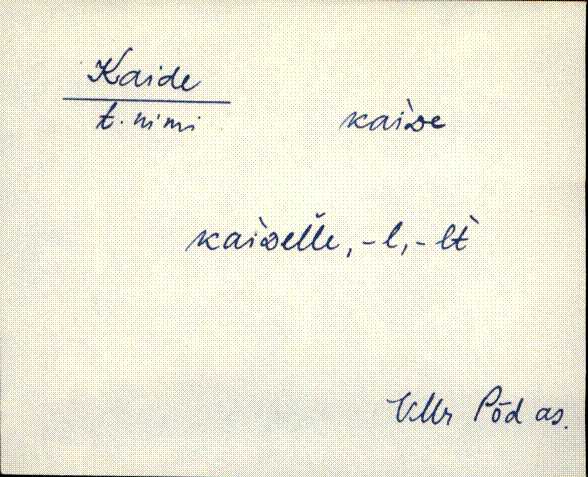 Kaide
t. nimi
kaìᴅe
kaìᴅelle, -l, -lt̀
VMr Põd as.